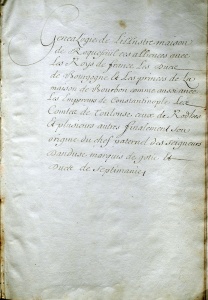 Genealogie de Lillustre maison
de Roquefeuil ses alliances avec
les Roys de france Les ducs
de Bourgogne & Les princes de La
maison de Bourbon comme aussi avec
Les Empereurs de Constantinople Les
Comtes de Toulouse ceux de Rodhes
et plusieurs autres finalement son
origine du chef paternel des seigneurs
danduse marquis de gotie
ducs de Septimanie